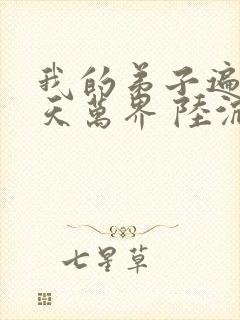 我的弟子遍
天萬界 陸沉
七星草